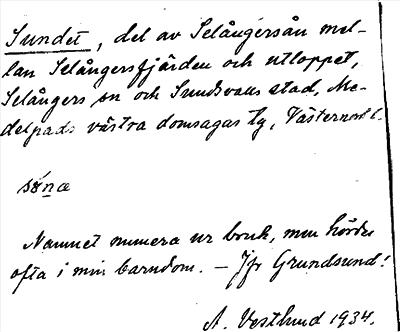 Sundet, del av Selångersån mel-
lan Selångersfjärden och utloppet,
Selångers sn och Sundsvalls stad, Me-
delpads västra domsagas tg, Västernorrl.
Namnet numera ur bruk, men hördes
ofta i min barndom. – Jfr Grundsund!
A. Vestlund 1934.